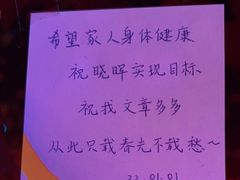 希望家人身体健康
祝晓晖实现目标
祝我文章多多
从此只载春光不载愁~
22.01.01